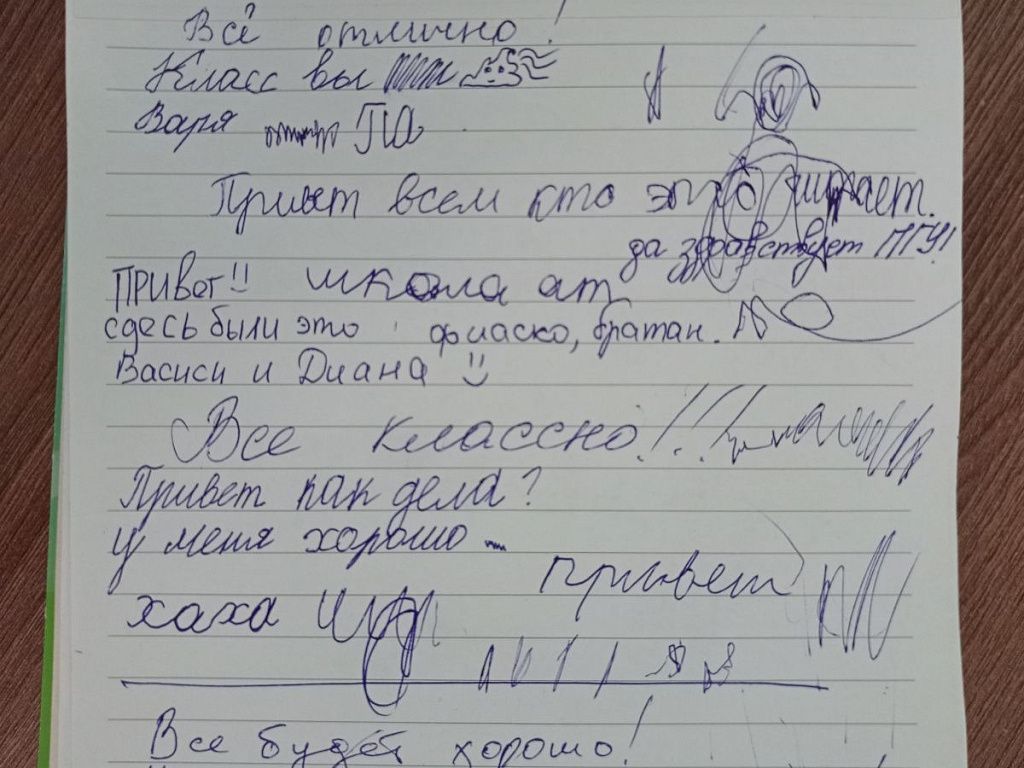 Всё отлично!
Класс вы
Варя ПА
Привет всем кто это читает.
да здравствует ПГУ!
Привет!! школа ат
сдесь были это фиаско, братан.
Васиси и Диана
Все классно!!!
Привет как дела?
у меня хорошо
привет
хаха
Все будет хорошо!